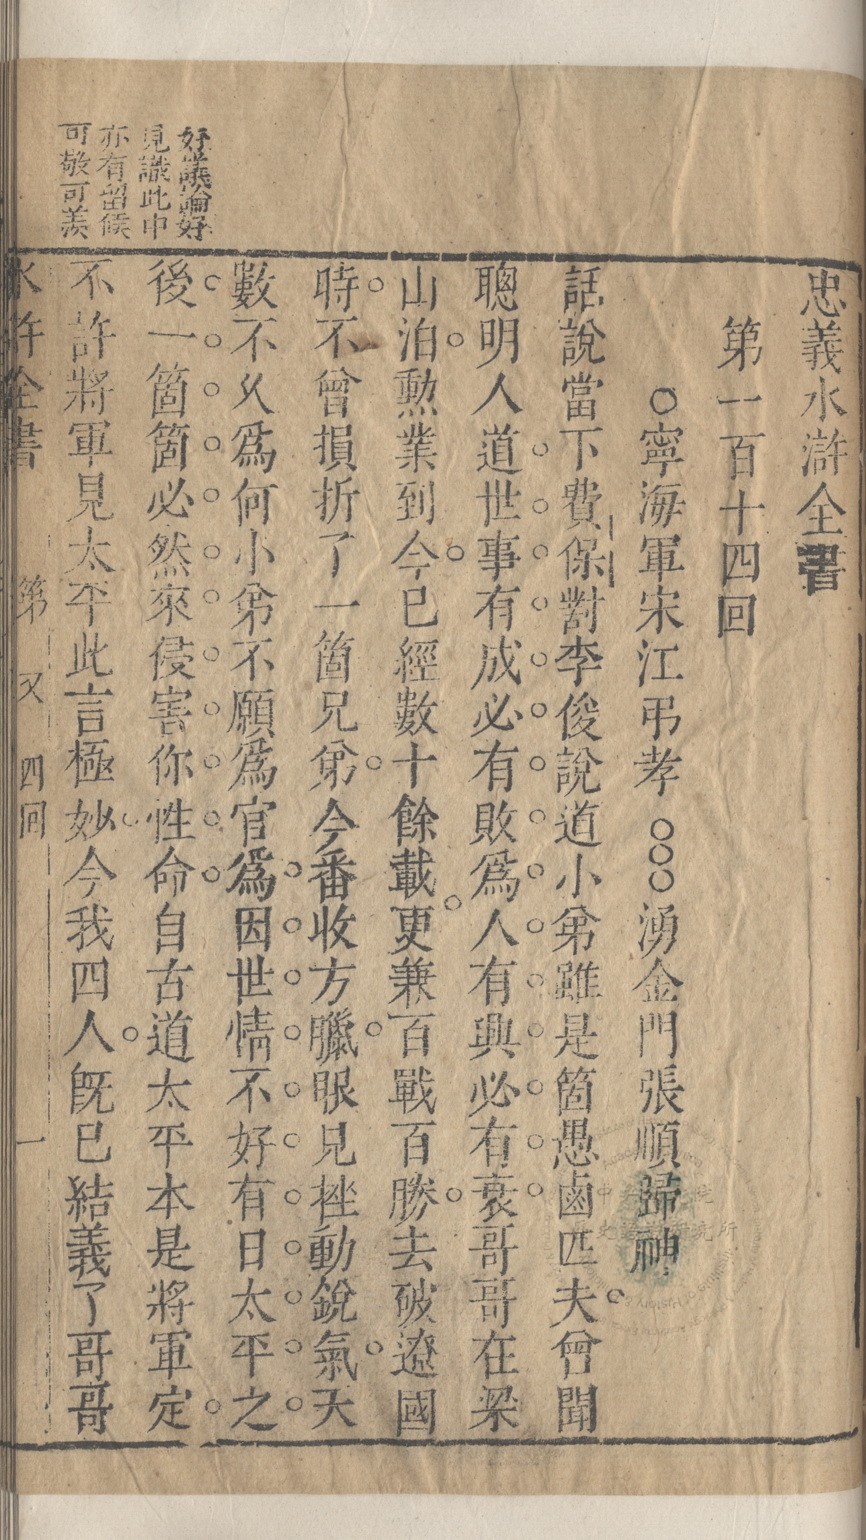 忠義水滸全書
第一百十四回
○寧海軍宋江弔孝 ○○○湧金門張順歸神
話說當下費保對李俊說道小弟雖是箇愚鹵匹夫曾聞
聰明人道世事有成必有敗爲人有興必有衰哥哥在梁
山泊勲業到今已經數十餘載更兼百戰百勝去破遼國
時不曾損折了一箇兄弟今番收方臘眼見挫動銳氣天
數不久爲何小弟不願爲官爲因世情不好有日太平之
後一箇箇必然來侵害你性命自古道太平本是將軍定
不許將軍見太平此言極妙今我四人旣已結義了哥哥
好議論好
見識此中
亦有留候
可敬可羨
水滸全書 第 四回 一